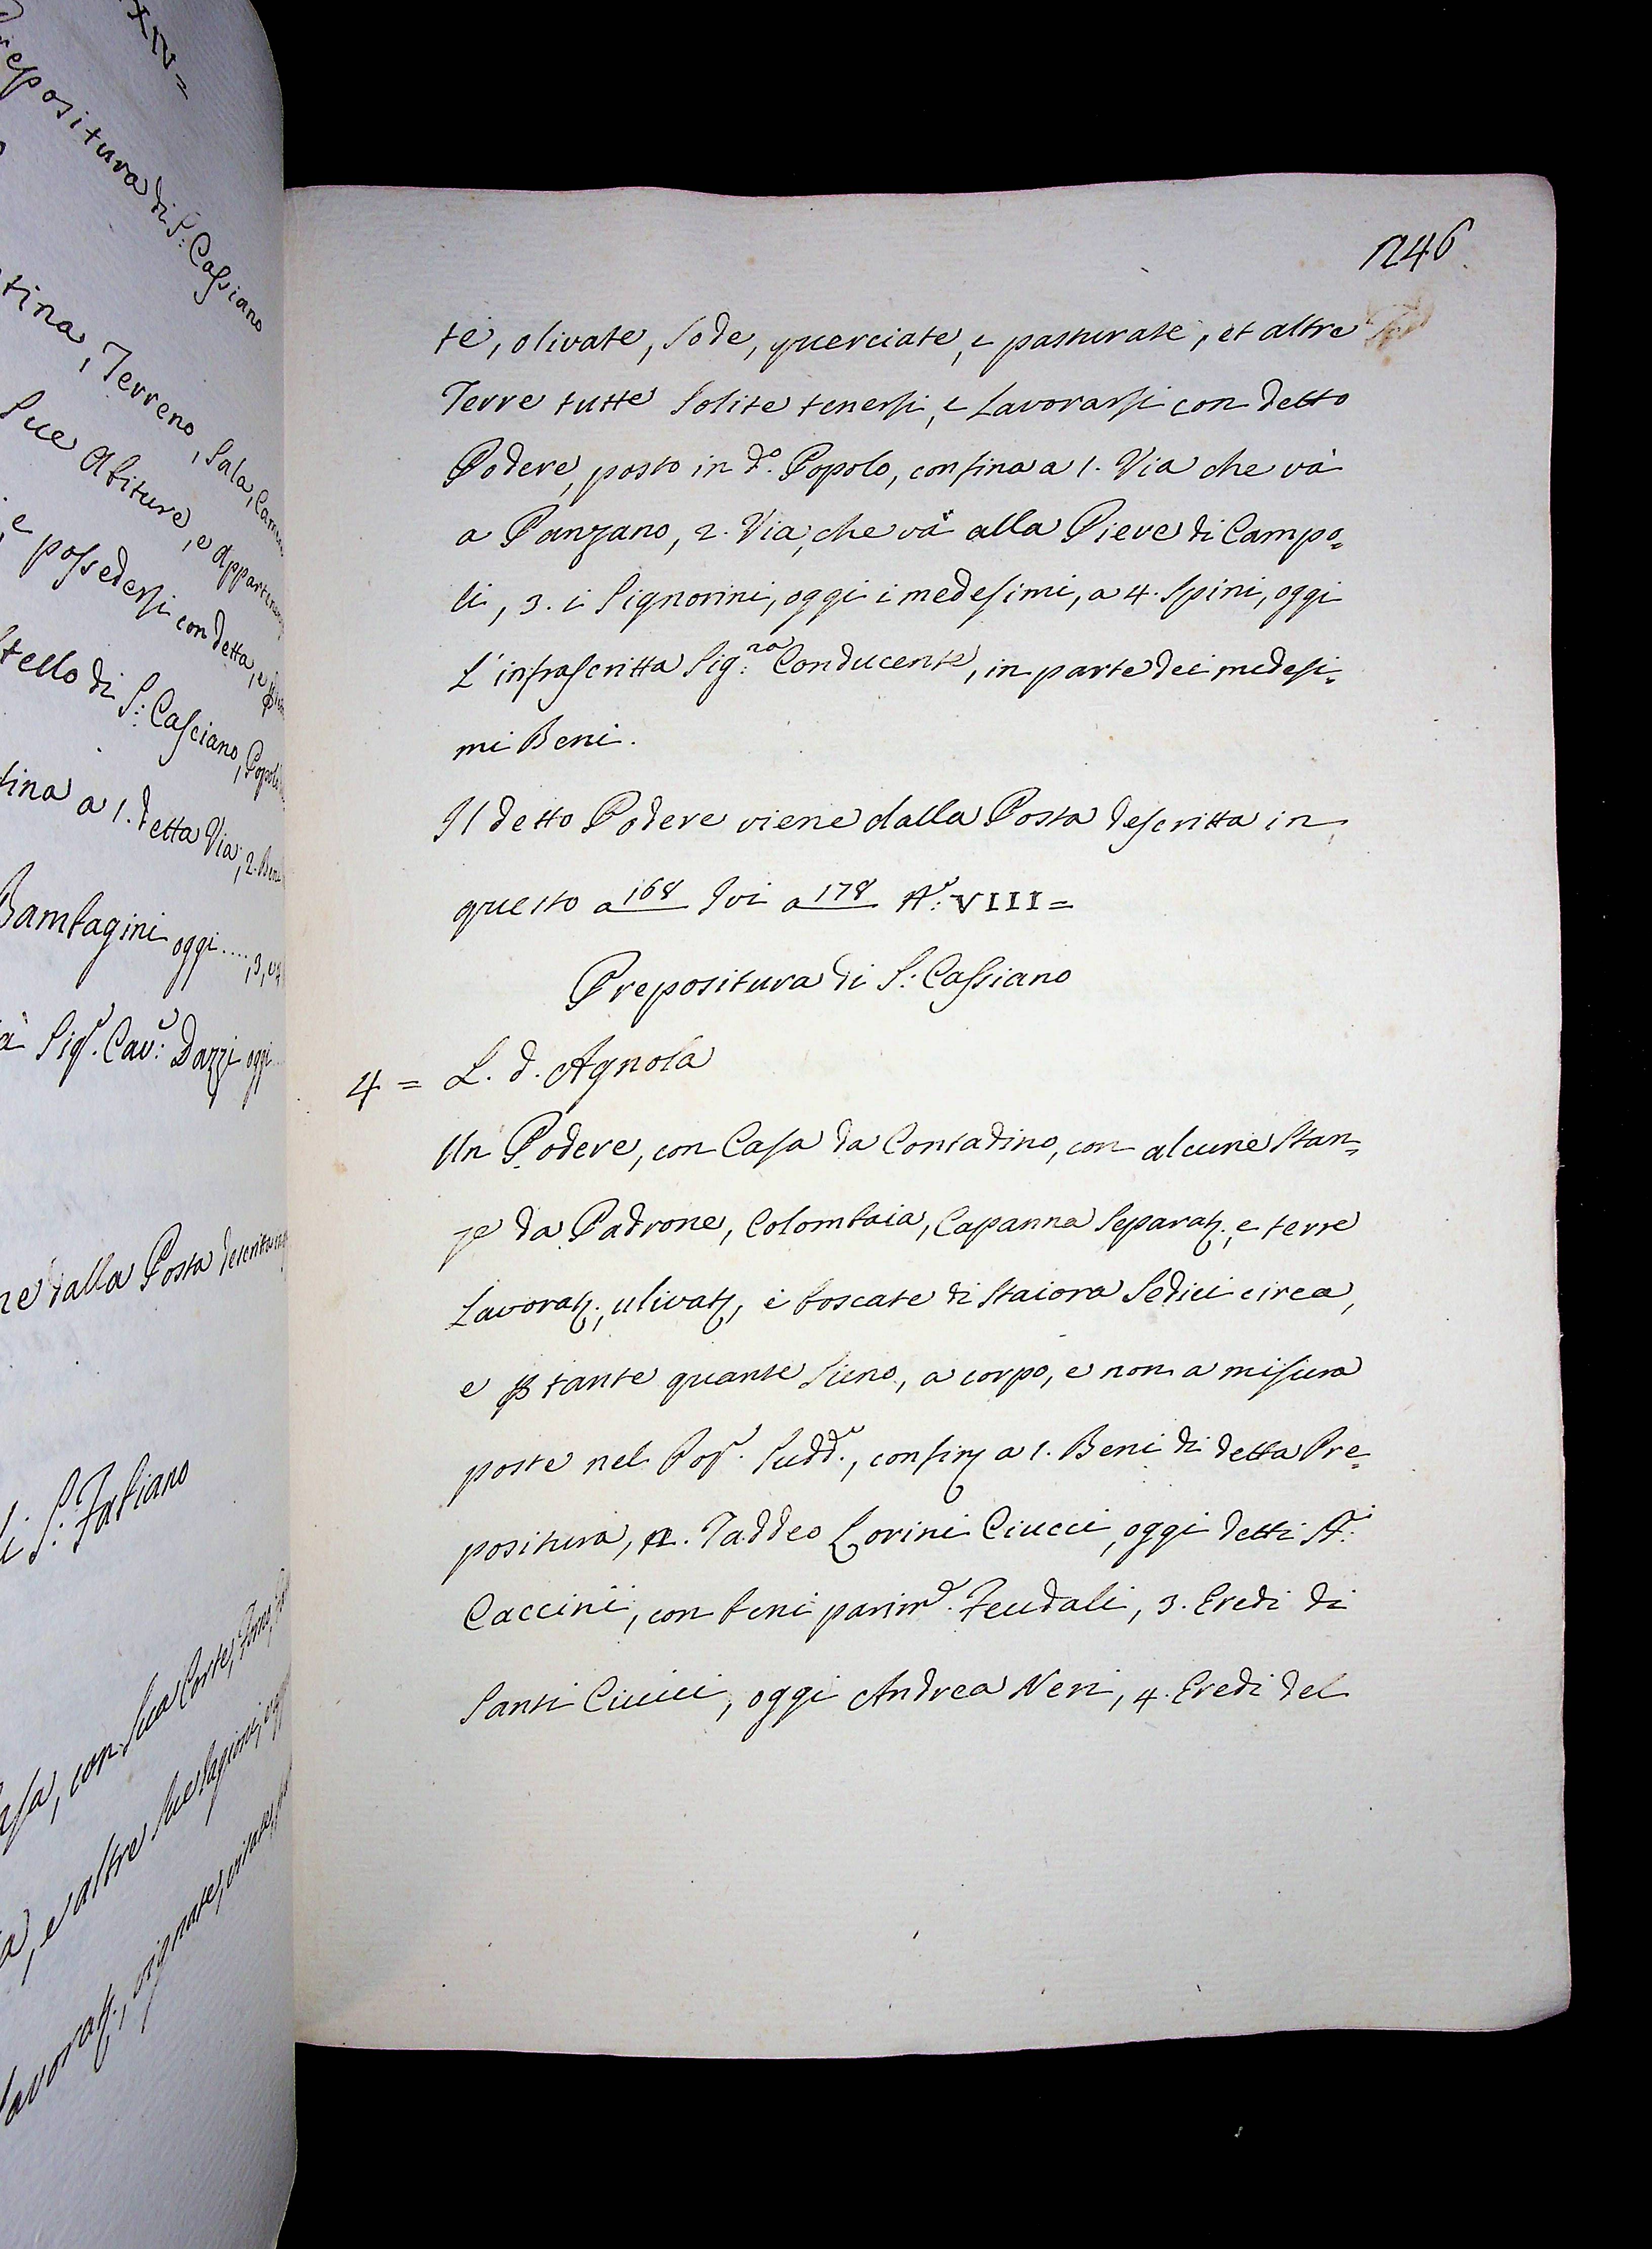 XIV=
repositura di S: Cassiano
tina, Terreno, Sala, Cam
sue Abiture, e apparten
, e possedersi con detta, e
stello di S: Casciano, Popolo
fina a 1. detta Via, 2. Beni
Bambagini oggi...., 3, e 4
Sig.r Cav:e Dazzi oggi
ne dalla Posta descritta
di S: Fabiano
asa, con sua Corte, Forno,
a, e altre sue ragioni, e
lavorat;, vignate, vitate,
246
te, olivate, sode, querciate, e pasturate, et altre
Terre tutte solite tenersi, e lavorarsi con detto
Podere, posto in d.o Popolo, confina a 1. Via che và
a Panzano, 2. Via, che và alla Pieve di Campo=
li, 3. i Signorini, oggi i medesimi, a 4. Spini, oggi
L'infrascritta Sig:ra Conducente, in parte dei medesi=
mi Beni.
Il detto Podere viene dalla Posta descritta in
questo a 168 Ivi a 178 N:o VIII=
Prepositura di S: Cassiano
4 = L. d. Agnola
Un Podere, con Casa da Contadino, con alcune stan=
ze da Padrone, Colombaia, Capanna separat;, e terre
Lavorat;, ulivat;, e boscate di Staiora Sedici circa,
e p tante quante sieno, a corpo, e non a misura
poste nel Pop.o sudd.o, confin; a 1. Beni di detta Pre=
positura, 2. Taddeo Lorini Ciucci, oggi detti SS:i
Caccini, con beni parim.e Feudali, 3. Eredi di
Santi Ciucci, oggi Andrea Neri, 4. Eredi del